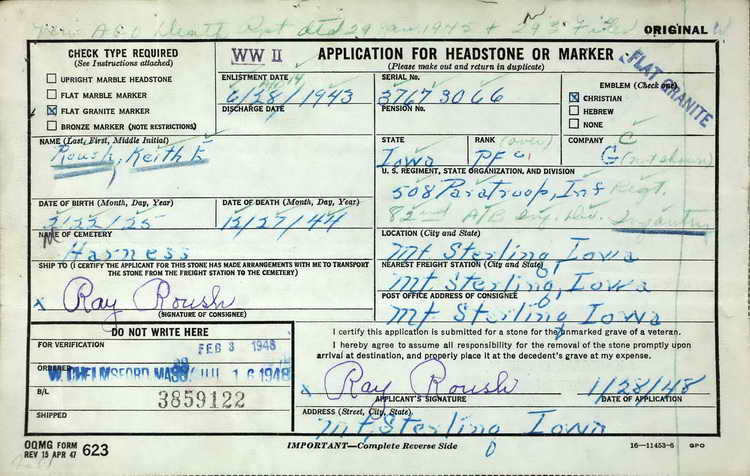 Death Rpt dtd 29 Jan 1945 + 293 Files
ORIGINAL
CHECK TYPE REQUIRED
(See Instructions attached)
UPRIGHT MARBLE HEADSTONE
FLAT MARBLE MARKER
☒ FLAT GRANITE MARKER
BRONZE MARKER (NOTE RESTRICTIONS)
WW II
APPLICATION FOR HEADSTONE OR MARKER
(Please make out and return in duplicate)
FLAT GRANITE
ENLISTMENT DATE
6/28/1943
DISCHARGE DATE
SERIAL No.
37673066
PENSION No.
EMBLEM (Check one)
☒ CHRISTIAN
HEBREW
NONE
NAME (Last, First, Middle Initial)
Roush, Keith E
STATE
Iowa
RANK (over)
PFC
COMPANY C
G (not shown)
U. S. REGIMENT, STATE ORGANIZATION, AND DIVISION
508 Paratroop, Inf Regt.
82nd A/B Div. Infantry
DATE OF BIRTH (Month, Day, Year)
3/22/25
DATE OF DEATH (Month, Day, Year)
12/27/44
NAME OF CEMETERY
Harness
LOCATION (City and State)
Mt Sterling Iowa
SHIP TO (I CERTIFY THE APPLICANT FOR THIS STONE HAS MADE ARRANGEMENTS WITH ME TO TRANSPORT
THE STONE FROM THE FREIGHT STATION TO THE CEMETERY)
NEAREST FREIGHT STATION (City and State)
Mt Sterling, Iowa
x Ray Roush
(SIGNATURE OF CONSIGNEE)
POST OFFICE ADDRESS OF CONSIGNEE
Mt Sterling Iowa
DO NOT WRITE HERE
FOR VERIFICATION
FEB 3 1948
ORDERED
W. CHELMSFORD MASS. JUL 16 1948
B/L
3859122
SHIPPED
I certify this application is submitted for a stone for the unmarked grave of a veteran.
I hereby agree to assume all responsibility for the removal of the stone promptly upon
arrival at destination, and properly place it at the decedent's grave at my expense.
x Ray Roush 1/28/48
APPLICANT'S SIGNATURE
DATE OF APPLICATION
ADDRESS (Street, City, State)
Mt, Sterling Iowa
OQMG FORM
REV 15 APR 47 623
IMPORTANT—Complete Reverse Side
16—11453-6 GPO